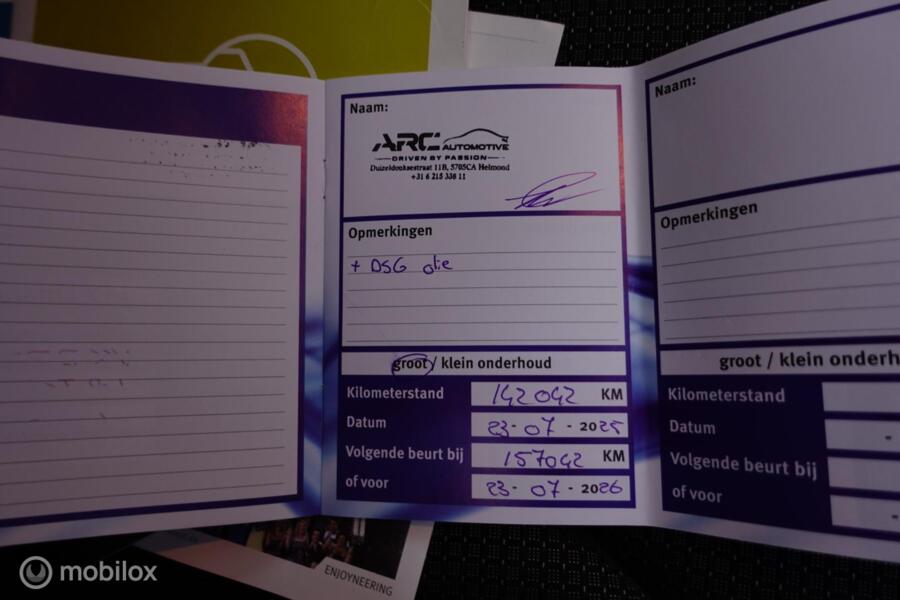 Naam:
ARC AUTOMOTIVE
DRIVEN BY PASSION
Duizeldonksestraat 11B, 5705CA Helmond
+31 6 215 338 11
Opmerkingen
+ DSG olie
groot / klein onderhoud
Kilometerstand 142042 KM
Datum 23-07-2025
Volgende beurt bij 157042 KM
of voor 23-07-2026
Naam:
Opmerkingen
groot / klein onderh
Kilometerstand
Datum -
Volgende beurt bij
of voor -
ENJOYNEERING
mobilox